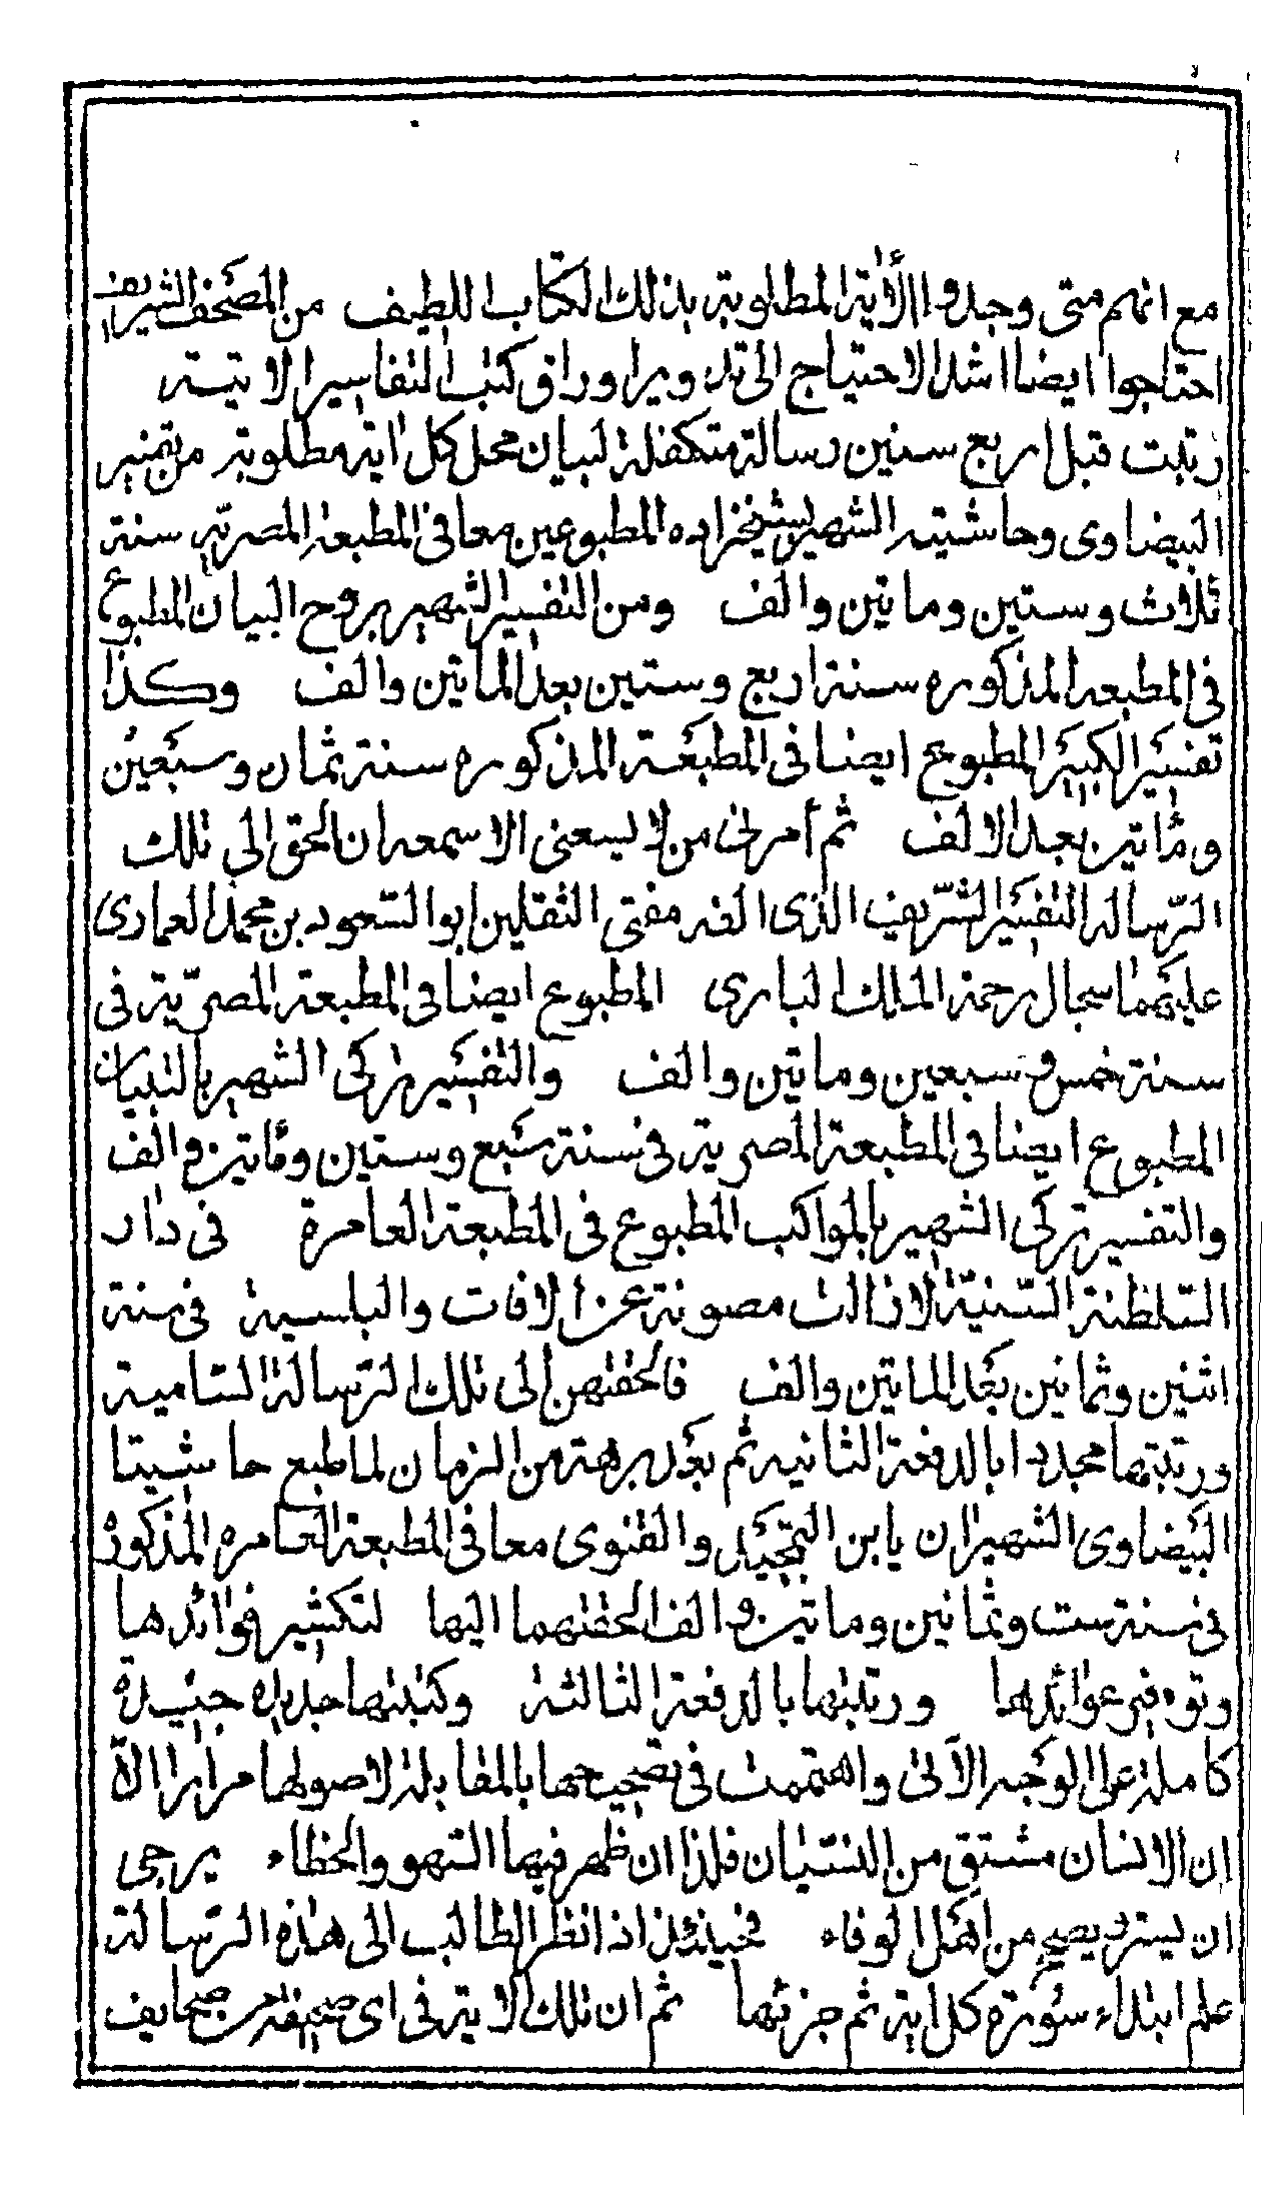 مع انهم متى وجدوا الأية المطلوبة بذلك الكتاب اللطيف من المصحف الشريف
احتاجوا ايضا اشد الاحتياج الى تدوير اوراق كتب التفاسير الاتية
رتبت قبل اربع سنين رسالة متكفلة لبيان محل كل اية مطلوبة من تفسير
البيضاوى وحاشيته الشهير بشيخزاده المطبوعين معا فى المطبعة المصرية سنة
ثلاث وستين ومأتين والف ومن التفسير الشهير بروح البيان المطبوع
فى المطبعه المذكوره سنة اربع وستين بعد المأتين والف وكذا
تفسير الكبير المطبوع ايضا فى المطبعة المذكوره سنة ثمان وسبعين
ومأتين بعد الالف ثم أمرنى من لا يسعنى الا سمعه ان الحق الى تلك
الرسالة التفسير الشريف الذى الفه مفتى الثقلين ابو السعود بن محمد العمادى
عليهما سجال رحمة الملك البارى المطبوع ايضا فى المطبعة المصرية فى
سنة خمس وسبعين ومأتين والف والتفسير تركى الشهير بالتبيان
المطبوع ايضا فى المطبعة المصرية فى سنة سبع وستين ومأتين والف
والتفسير تركى الشهير بالمواكب المطبوع فى المطبعة العامرة فى دار
السلطنة السنية لازالت مصونة عن الافات والبلية فى سنة
اثنين وثمانين بعد المأتين والف فالحقتهن الى تلك الرسالة السامية
ورتبتها مجددا بالدفعة الثانيه ثم بعد برهة من الزمان لما طبع حاشيتا
البيضاوى الشهيران يابن التمجيد والقنوى معا فى المطبعة العامره المذكوره
فى سنة ست وثمانين ومأتين والف الحقتهما اليها لتكثير فوائدها
وتوفير عوائدها ورتبتها بالدفعة الثالثة وكتبتها جديدة جيدة
كاملة على الوجه الآتى واهتممت فى تصحيحها بالمقابلة لاصولها مرارا الا
ان الانسان مشتق من النسيان فلذا ان ظهر فيها السهو والخطاء يرجى
ان يستر ذيصح من اهل الوفاء فحينئذ اذا نظر الطالب الى هذه الرسالة
علم ابتداء سورة كل اية ثم جزئها ثم ان تلك الاية فى اى صحيفة من صحايف